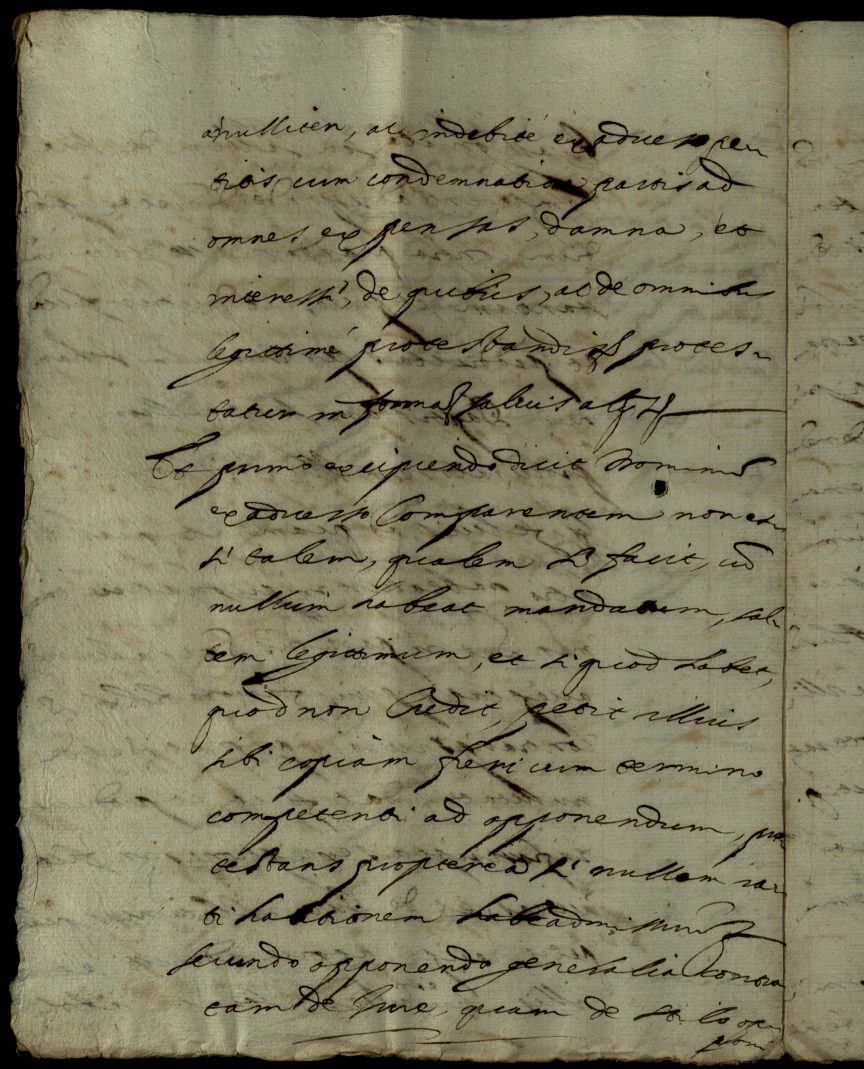 nulliter, ac indebité ex adverso peti
titis cum condemnatione partis ad
omnes expensas, damna, et
interesse, de quibus, ac de omnibus
legitimé protestandis protes-
tatur in forma salvis aliis
Et primo excipiendo dicit Dominum
ex adverso Comparentem non es-
se talem, qualem se facit, cum
nullum habeat mandatum, sal-
tem legitimum, et si quod habet,
quod non Credit, petit illius
sibi copiam fieri cum termino
competenti ad opponendum, pro
testans propterea se nullam
admissurum
secundo opponendo generalia contra
tam de Jure, quam de stilo op
poni